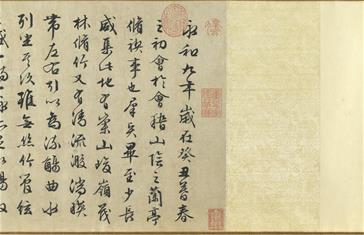 永和九年歲在癸丑暮春
之初會於會稽山陰之蘭亭
脩禊事也群賢畢至少長
咸集此地有崇山峻嶺茂
林脩竹又有清流激湍暎
帶左右引以為流觴曲水
列坐其次雖無絲竹管絃
之盛一觴一詠亦足以暢